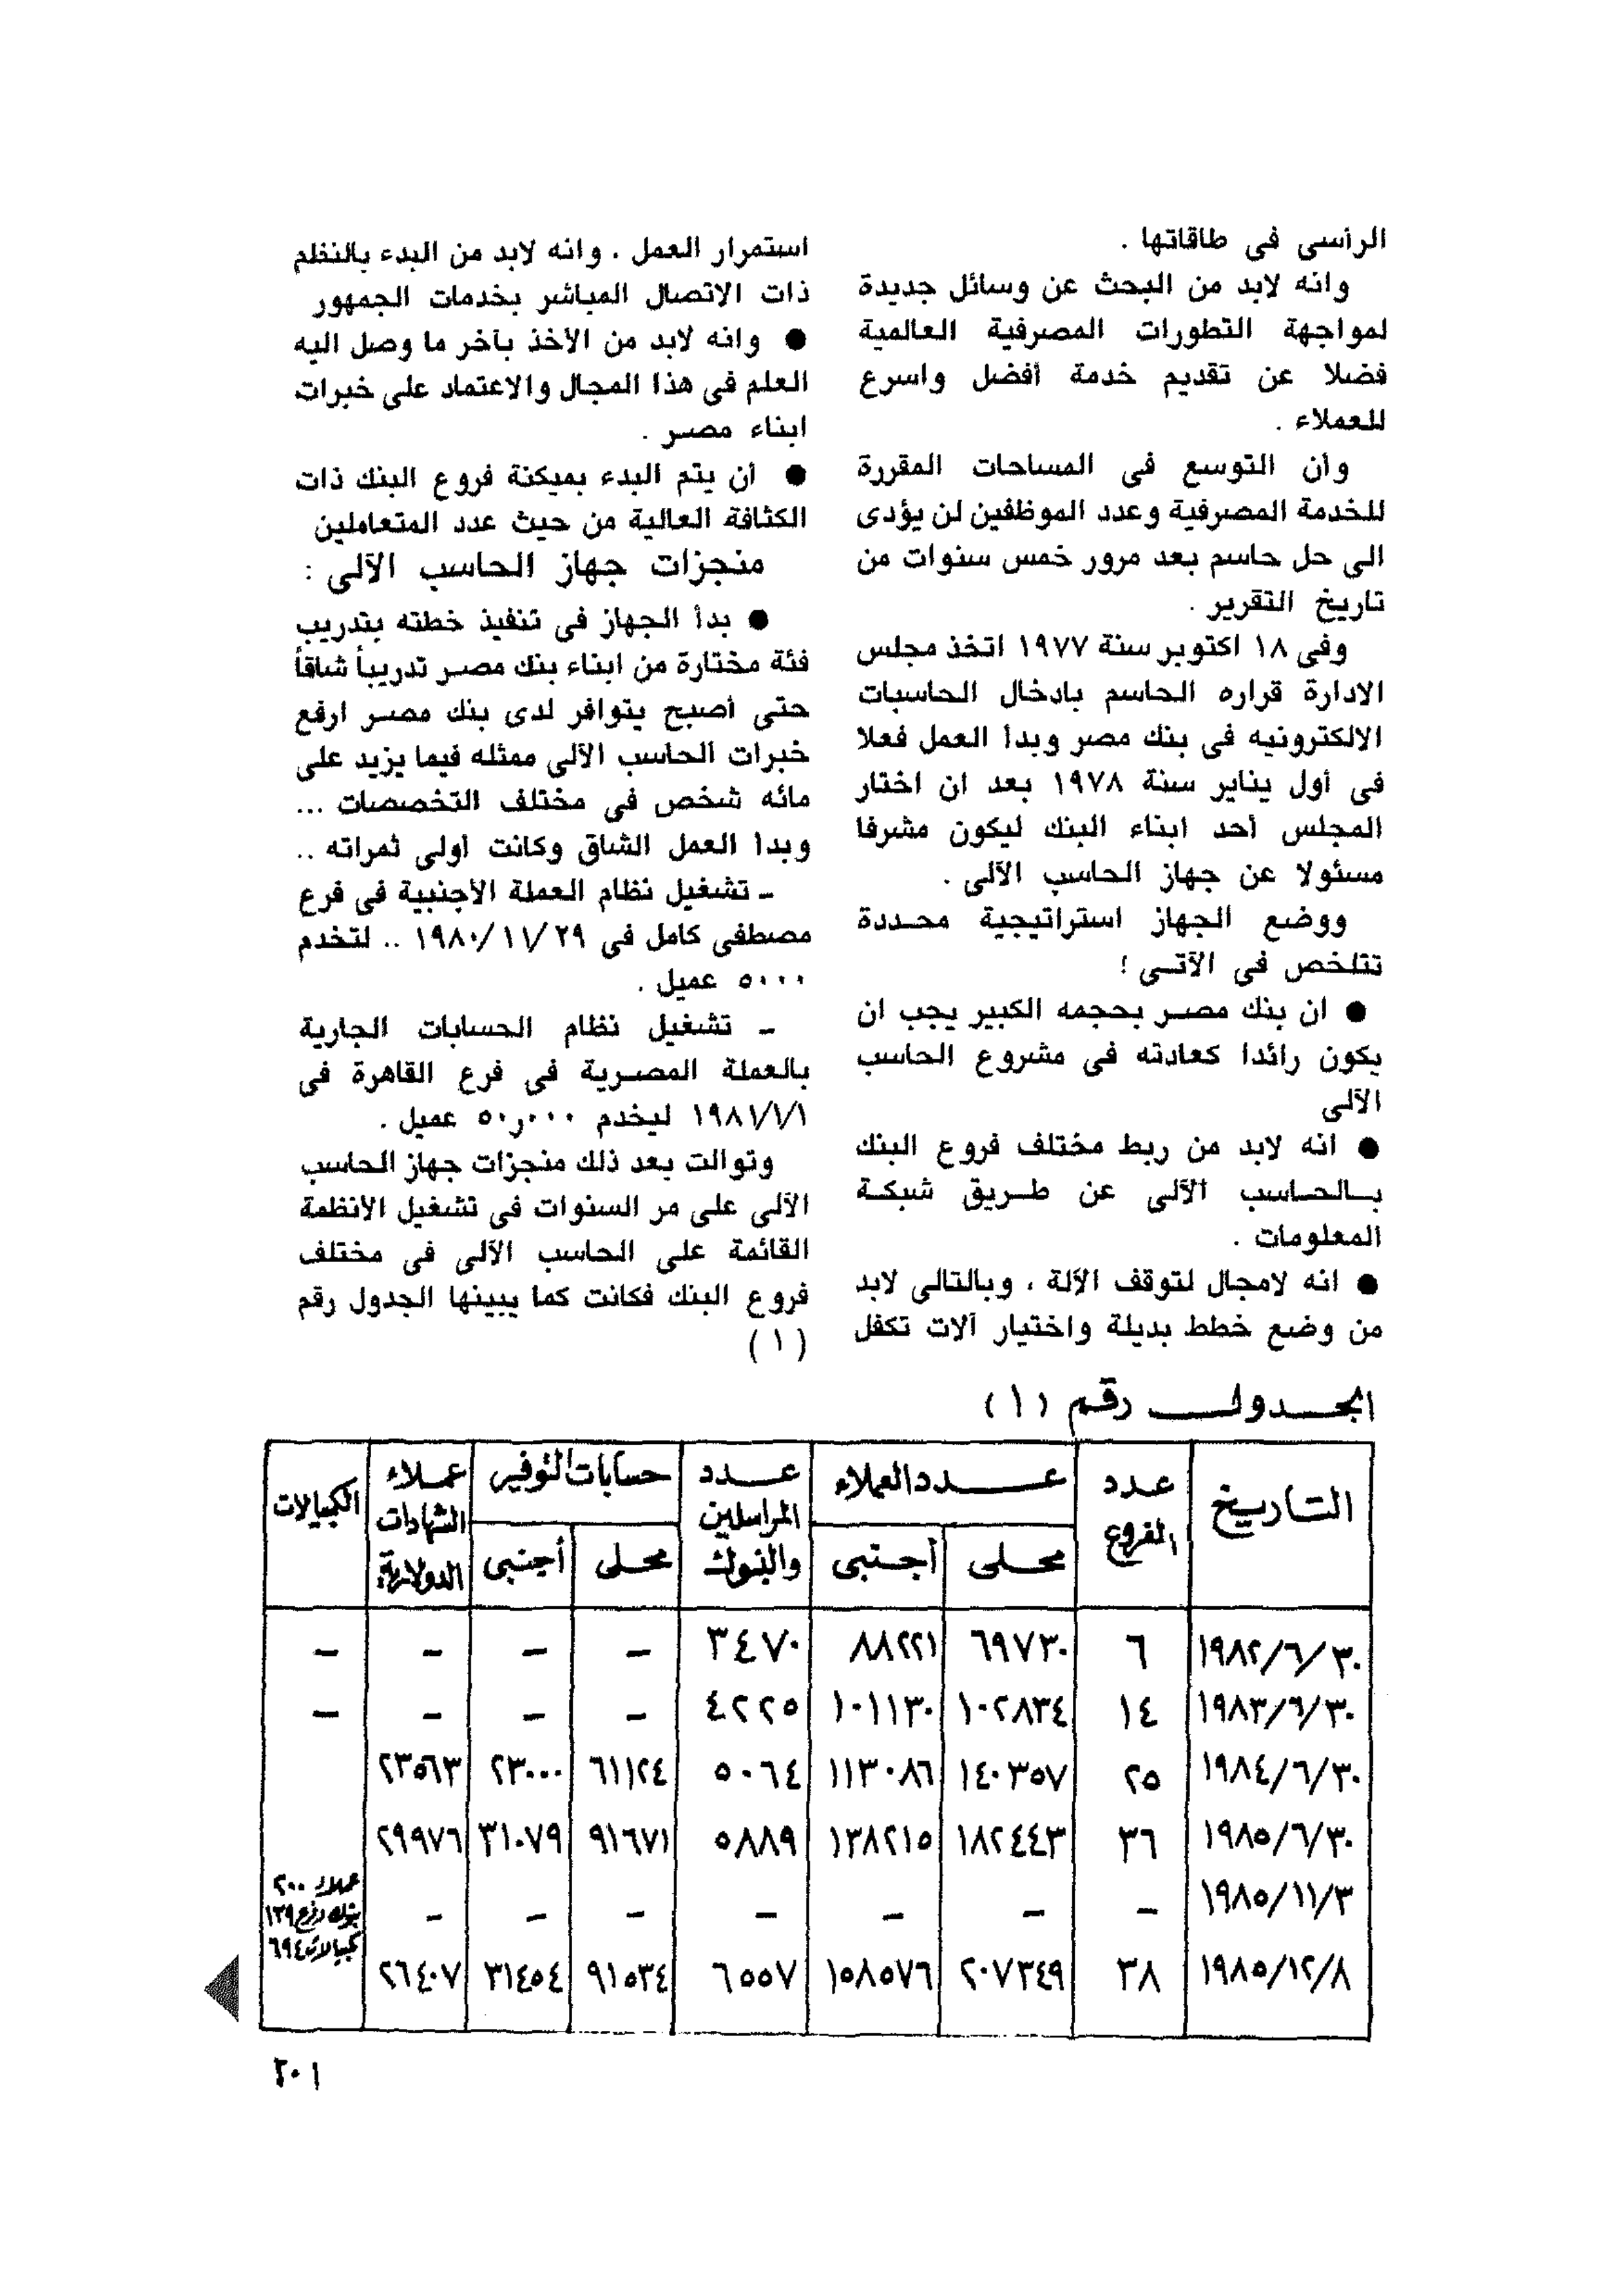 الرأسى فى طاقاتها .
وانه لابد من البحث عن وسائل جديدة
لمواجهة التطورات المصرفية العالمية
فضلا عن تقديم خدمة أفضل واسرع
للعملاء .
وأن التوسع فى المساحات المقررة
للخدمة المصرفية وعدد الموظفين لن يؤدى
الى حل حاسم بعد مرور خمس سنوات من
تاريخ التقرير .
وفى ١٨ اكتوبر سنة ١٩٧٧ اتخذ مجلس
الادارة قراره الحاسم بادخال الحاسبات
الالكترونيه فى بنك مصر وبدأ العمل فعلا
فى أول يناير سنة ١٩٧٨ بعد ان اختار
المجلس أحد ابناء البنك ليكون مشرفا
مسئولا عن جهاز الحاسب الآلى .
ووضع الجهاز استراتيجية محددة
تتلخص فى الآتى ؛
● ان بنك مصر بحجمه الكبير يجب ان
يكون رائدا كعادته فى مشروع الحاسب
الآلى
● انه لابد من ربط مختلف فروع البنك
بالحاسب الآلى عن طريق شبكة
المعلومات .
● انه لامجال لتوقف الآلة ، وبالتالى لابد
من وضع خطط بديلة واختيار آلات تكفل
استمرار العمل . وانه لابد من البدء بالنظم
ذات الاتصال المباشر بخدمات الجمهور
● وانه لابد من الأخذ بآخر ما وصل اليه
العلم فى هذا المجال والاعتماد على خبرات
ابناء مصر .
● أن يتم البدء بميكنة فروع البنك ذات
الكثافة العالية من حيث عدد المتعاملين
منجزات جهاز الحاسب الآلى :
● بدأ الجهاز فى تنفيذ خطته بتدريب
فئة مختارة من ابناء بنك مصر تدريباً شاقاً
حتى أصبح يتوافر لدى بنك مصر ارفع
خبرات الحاسب الآلى ممثله فيما يزيد على
مائه شخص فى مختلف التخصصات ...
وبدا العمل الشاق وكانت أولى ثمراته ..
ـ تشغيل نظام العملة الأجنبية فى فرع
مصطفى كامل فى ٢٩/ ١١/ ١٩٨٠ .. لتخدم
٥٠٠٠ عميل .
ـ تشغيل نظام الحسابات الجارية
بالعملة المصرية فى فرع القاهرة فى
١٩٨١/١/١ ليخدم ٥٠,٠٠٠ عميل .
وتوالت بعد ذلك منجزات جهاز الحاسب
الآلى على مر السنوات فى تشغيل الأنظمة
القائمة على الحاسب الآلى فى مختلف
فروع البنك فكانت كما يبينها الجدول رقم
(١)
الجدول رقم (١)
التاريخ عدد الفروع عدد العملاء عدد المراسلين والبنوك حسابات التوفير عملاء الشهادات الدولارية الكمبيالات
محلى أجنبى محلى أجنبى
١٩٨٢/٦/٣٠ ٦ ٦٩٧٣٠ ٨٨٢٢١ ٣٤٧٠ – – – –
١٩٨٣/٦/٣٠ ١٤ ١٠٢٨٣٤ ١٠١١٣٠ ٤٢٢٥ – – – –
١٩٨٤/٦/٣٠ ٢٥ ١٤٠٣٥٧ ١١٣٠٨٦ ٥٠٦٤ ٦١١٢٤ ٢٣٠٠٠ ٢٣٥٦٣
١٩٨٥/٦/٣٠ ٣٦ ١٨٢٤٤٣ ١٣٨٢١٥ ٥٨٨٩ ٩١٦٧١ ٣١٠٧٩ ٢٩٩٧٦
١٩٨٥/١١/٣ – – – – – – – عملاء ٢٠٠
بنوك وفروع ١٣٩
كمبيالات ٦٩٤
١٩٨٥/١٢/٨ ٣٨ ٢٠٧٣٤٩ ١٥٨٥٧٦ ٦٥٥٧ ٩١٥٣٤ ٣١٤٥٤ ٢٦٤٠٧
٢٠١